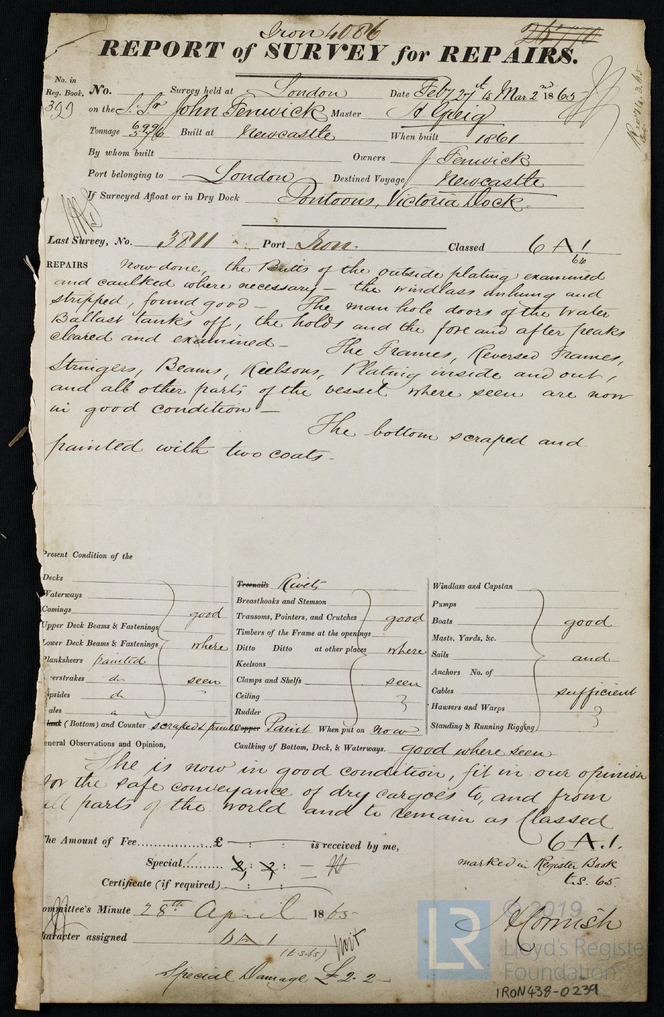 Iron 4086
REPORT of SURVEY for REPAIRS.
No. in
Reg. Book.
399
No. Survey held at London Date Feby 27th to Mar 2nd 1865
on the S. Sr John Fenwick Master A Greig
Tonnage Built at Newcastle When built 1861
By whom built Owners J Fenwick
Port belonging to London Destined Voyage Newcastle
If Surveyed Afloat or in Dry Dock Pontoons, Victoria Dock.
Last Survey, No. 3811 Port Iron. Classed 6 A 1
64
REPAIRS Now done, the Butts of the outside plating examined
and caulked where necessary – the windlass unhung and
stripped, found good – The man hole doors of the Water
Ballast tanks off, the holds and the fore and after peaks
cleared and examined – The Frames, Reversed Frames,
Stringers, Beams, Keelsons, Plating inside and out,
and all other parts of the vessel where seen are now
in good condition –
The bottom scraped and
painted with two coats.
Present Condition of the
Decks
Waterways
Comings good
Upper Deck Beams & Fastenings
Lower Deck Beams & Fastenings where
Planksheers painted
erstrakes do seen
psides do "
ales
(Bottom) and Counter scraped & painted
Treenails Rivets
Breasthooks and Stemson
Transoms, Pointers, and Crutches good
Timbers of the Frame at the openings
Ditto Ditto at other places where
Keelsons
Clamps and Shelfs seen
Ceiling
Rudder
Copper Paint When put on now
Caulking of Bottom, Deck, & Waterways. good where seen
Windlass and Capstan
Pumps
Boats good
Masts, Yards, &c.
Sails and
Anchors No. of
Cables sufficient
Hawsers and Warps
Standing & Running Rigging
eneral Observations and Opinion,
She is now in good condition, fit in our opinion
for the safe conveyance of dry cargoes to, and from
all parts of the world and to remain as Classed
6 A. 1.
The Amount of Fee £ is received by me,
Special 2 : 2 : –
Certificate (if required)
marked in Register Book
t.s. 65
ommittee's Minute 28th April 1865
haracter assigned 6 A 1
(t.s. 65)
J Cornish
Special Damage £2.2
© 2019
LR
Lloyd's Register
Foundation
IRON438-0239